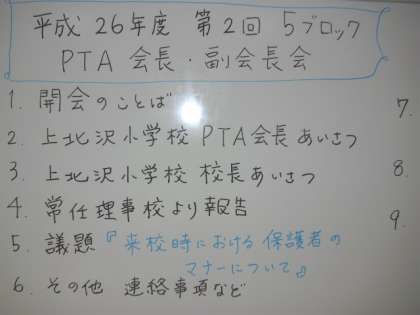 平成26年度 第2回 5ブロック
PTA 会長・副会長会
1. 開会のことば
2. 上北沢小学校 PTA会長あいさつ
3. 上北沢小学校 校長あいさつ
4. 常任理事校より報告
5. 議題『来校時における保護者の
マナーについて』
6. その他 連絡事項など
7.
8.
9.